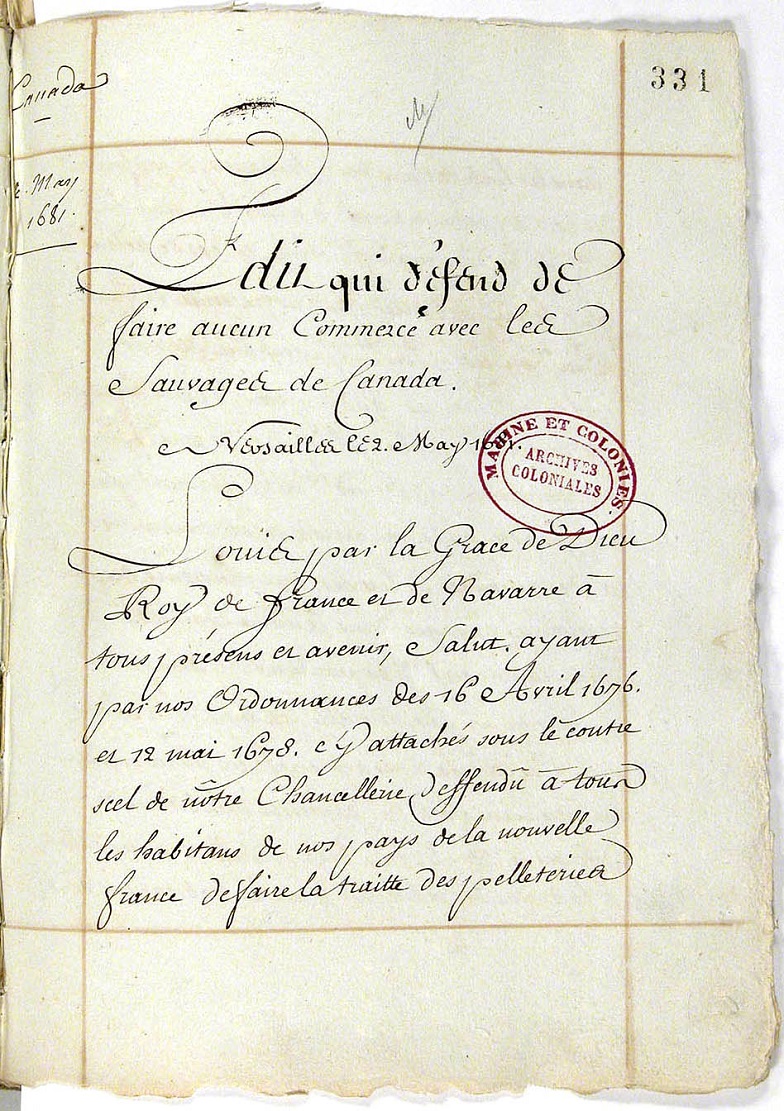 331
Canada
2. May
1681.
Edit qui défend de
faire aucun Commerce avec les
Sauvages de Canada.
a Versailles le 2. May 1681.
MARINE ET COLONIES
ARCHIVES
COLONIALES
Louis par la Grace de Dieu
Roy de france et de Navarre à
tous présens et avenir, Salut. ayant
par nos Ordonnances des 16 Avril 1676.
et 12 mai 1678. cy attachés sous le contre
scel de nôtre Chancellerie deffendû à tous
les habitans de nos pays de la nouvelle
france de faire la traitte des pelleteries